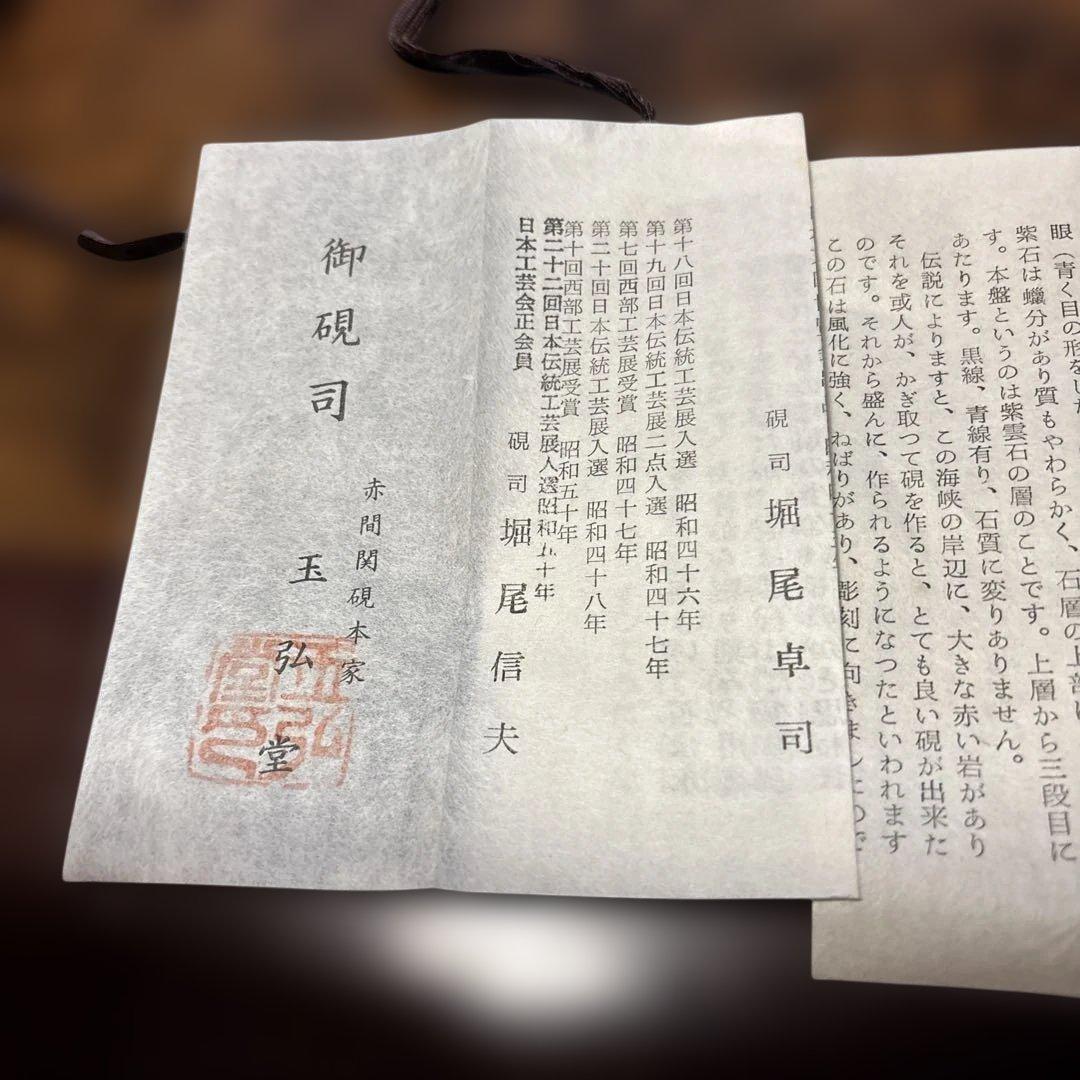 眼(青く目の形をし
紫石は蠟分があり質もやわらかく、石層の上部
す。本盤というのは紫雲石の層のことです。上層から三段目に
あたります。黒線、青線有り、石質に変りありません。
伝説によりますと、この海峡の岸辺に、大きな赤い岩があり
それを或人が、かぎ取つて硯を作ると、とても良い硯が出来た
のです。それから盛んに、作られるようになつたといわれます
この石は風化に強く、ねばりがあり、彫刻に向きましたので
硯司 堀尾卓司
第十八回日本伝統工芸展入選 昭和四十六年
第十九回日本伝統工芸展二点入選 昭和四十七年
第七回西部工芸展受賞 昭和四十七年
第二十回日本伝統工芸展入選 昭和四十八年
第十回西部工芸展受賞 昭和五十年
第二十二回日本伝統工芸展入選昭和五十年
日本工芸会正会員
硯司 堀尾信夫
御硯司
赤間関硯本家
玉弘堂
玉弘堂印